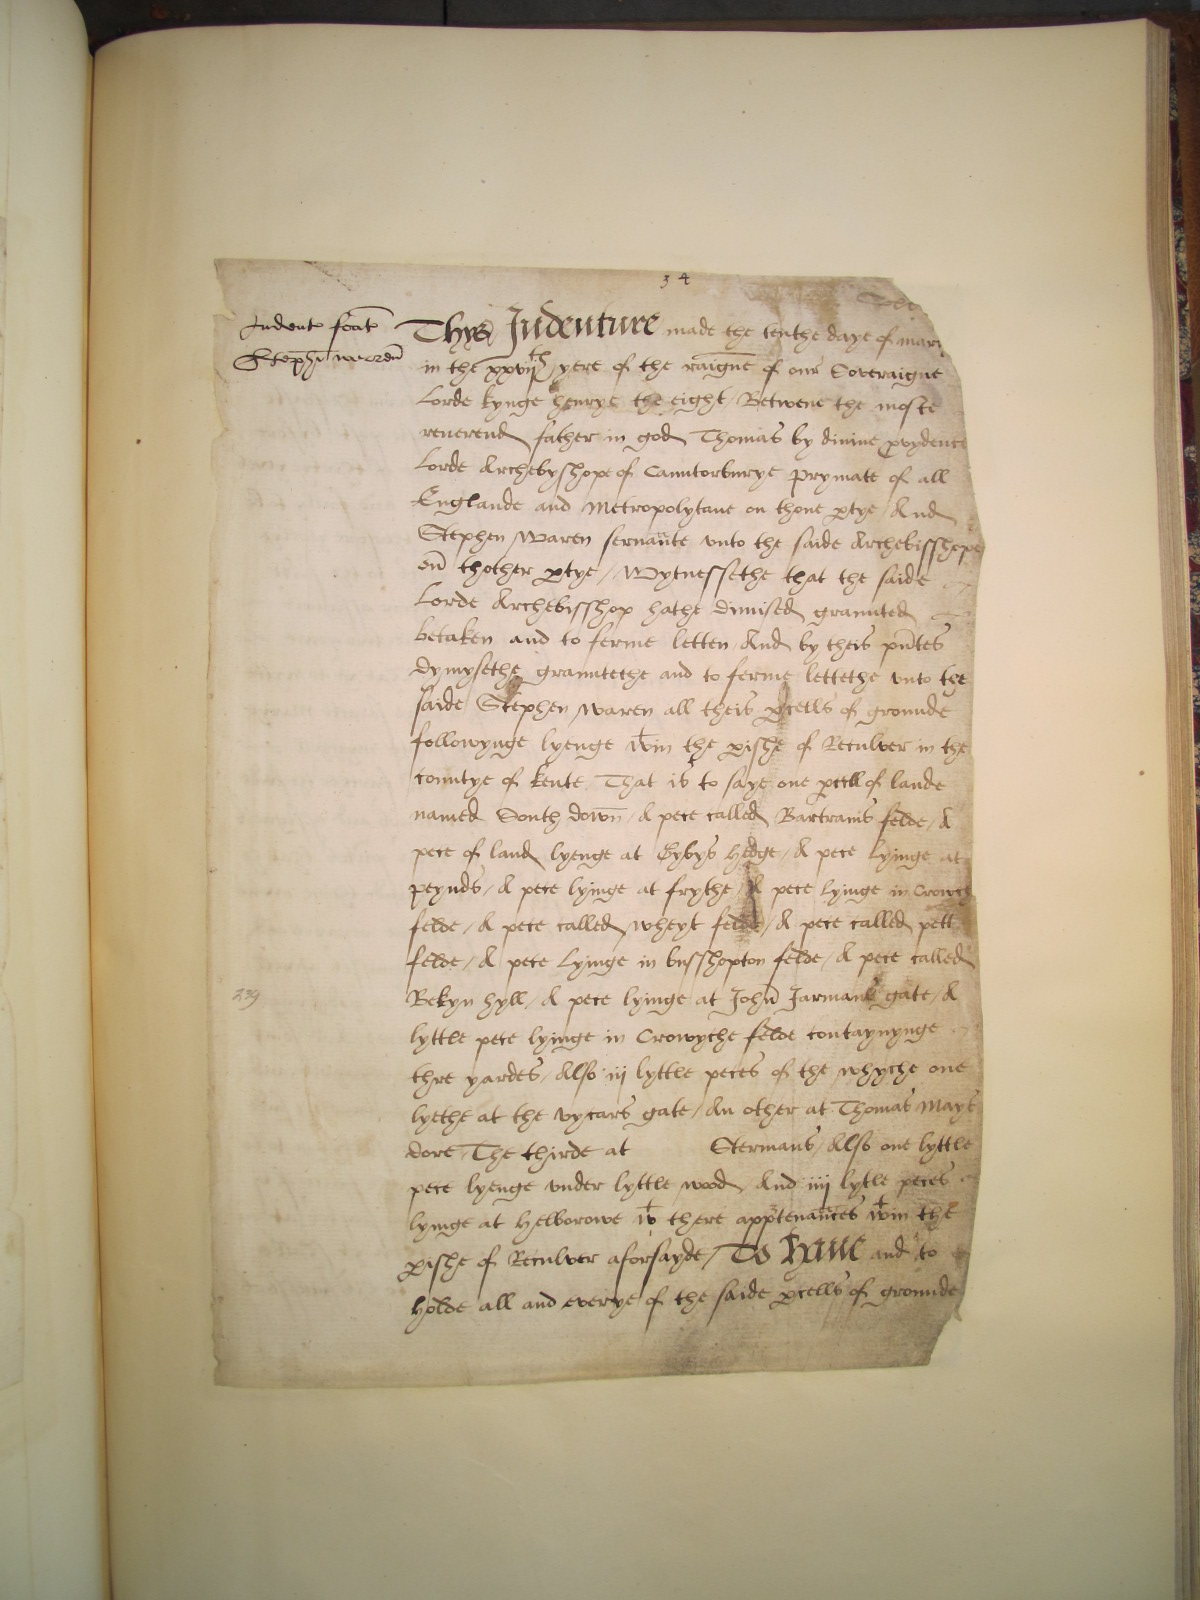 34
Indent fact
Stephi Waren
Thys Indenture made the tenthe daye of mar
in the xxvijth yere of the raigne of our Soveraigne
Lorde Kynge henrye the eight / Betwene the moste
reverend father in god Thomas by divine pvydence
Lorde Archebyshope of Caunterburye prymate of all
Englande and Metropolytane on thone ptye / And
Stephen Waren servaunte unto the saide Archebisshope
on thother ptye / Wytnessethe that the saide
Lorde Archebisshop hathe dimised graunted
betaken and to ferme letten And by theis pntes
dymysethe grauntethe and to ferme lettethe unto the
saide Stephen Waren all theis pcells of grounde
followynge lyenge wtin the pishe of Reculver in the
countye of Kente / That is to saye one pcell of lande
named South down / A pece called Bartrams felde / A
pece of land lyenge at Gybys hedge / A pece lyinge at
peynds / A pece lyinge at frythe / A pece lyinge in Crowch
felde / A pece called wheyt felde / A pece called pett
felde / A pece lyinge in busshopton felde / A pece called
Bekyn hyll / A pece lyinge at John Jarmans gate / A
lyttle pece lyinge in Crowyche felde contaynynge
thre yardes / Also iij lyttle peces of the whyche one
lyethe at the vycars gate / An other at Thomas Mays
dore The thirde at Stermans / Also one lyttle
pece lyenge under lyttle wood / And iiij lytle peces
lyinge at Helborowe wt there apptenaunces wtin the
pishe of Reculver aforsayde / To have and to
holde all and everye of the saide pcells of grounde
239